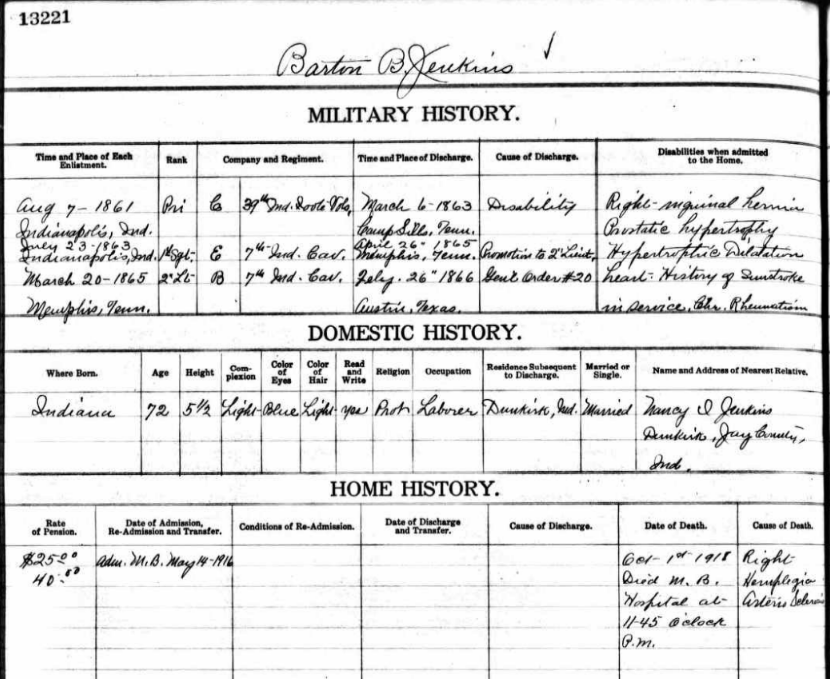 13221
Barton B. Jenkins ✓
MILITARY HISTORY.
Time and Place of Each Enlistment. Rank Company and Regiment. Time and Place of Discharge. Cause of Discharge. Disabilities when admitted to the Home.
Aug 7-1861 Pri C 39th Ind. Foote Vols, March 6-1863 Disability Right-inguinal hernia
Indianapolis, Ind. Camp Tenn. Prostatic hypertrophy
July 23-1863 April 26" 1865
Indianapolis, Ind. 1st Sgt- E 7th-Ind. Cav. Memphis, Tenn. Promotion to 2" Lieut, Hypertroptic Dilatation
March 20-1865 2" Lt- B 7th Ind. Cav. Feby. 26" 1866 Genl Order #20 heart- History of Sunstroke
Memphis, Tenn. Austin, Texas. in service, Chr. Rheumatism
DOMESTIC HISTORY.
Where Born. Age Height Com-plexion Color of Eyes Color of Hair Read and Write Religion Occupation Residence Subsequent to Discharge. Married or Single. Name and Address of Nearest Relative.
Indiana 72 5 1/2 Light- Blue Light- yes Prot Laborer Dunkirk, Ind. Married Nancy I Jenkins
Dunkirk, Jay County,
Ind.
HOME HISTORY.
Rate of Pension. Date of Admission, Re-Admission and Transfer. Conditions of Re-Admission. Date of Discharge and Transfer. Cause of Discharge. Date of Death. Cause of Death.
$25.00 Adm. M.B. May 14-1916 Oct- 1st-1918 Right
40.00 Died M. B. Hemplegia
Hospital at- Arterio Sclerosis
11-45 O'clock
P.M.